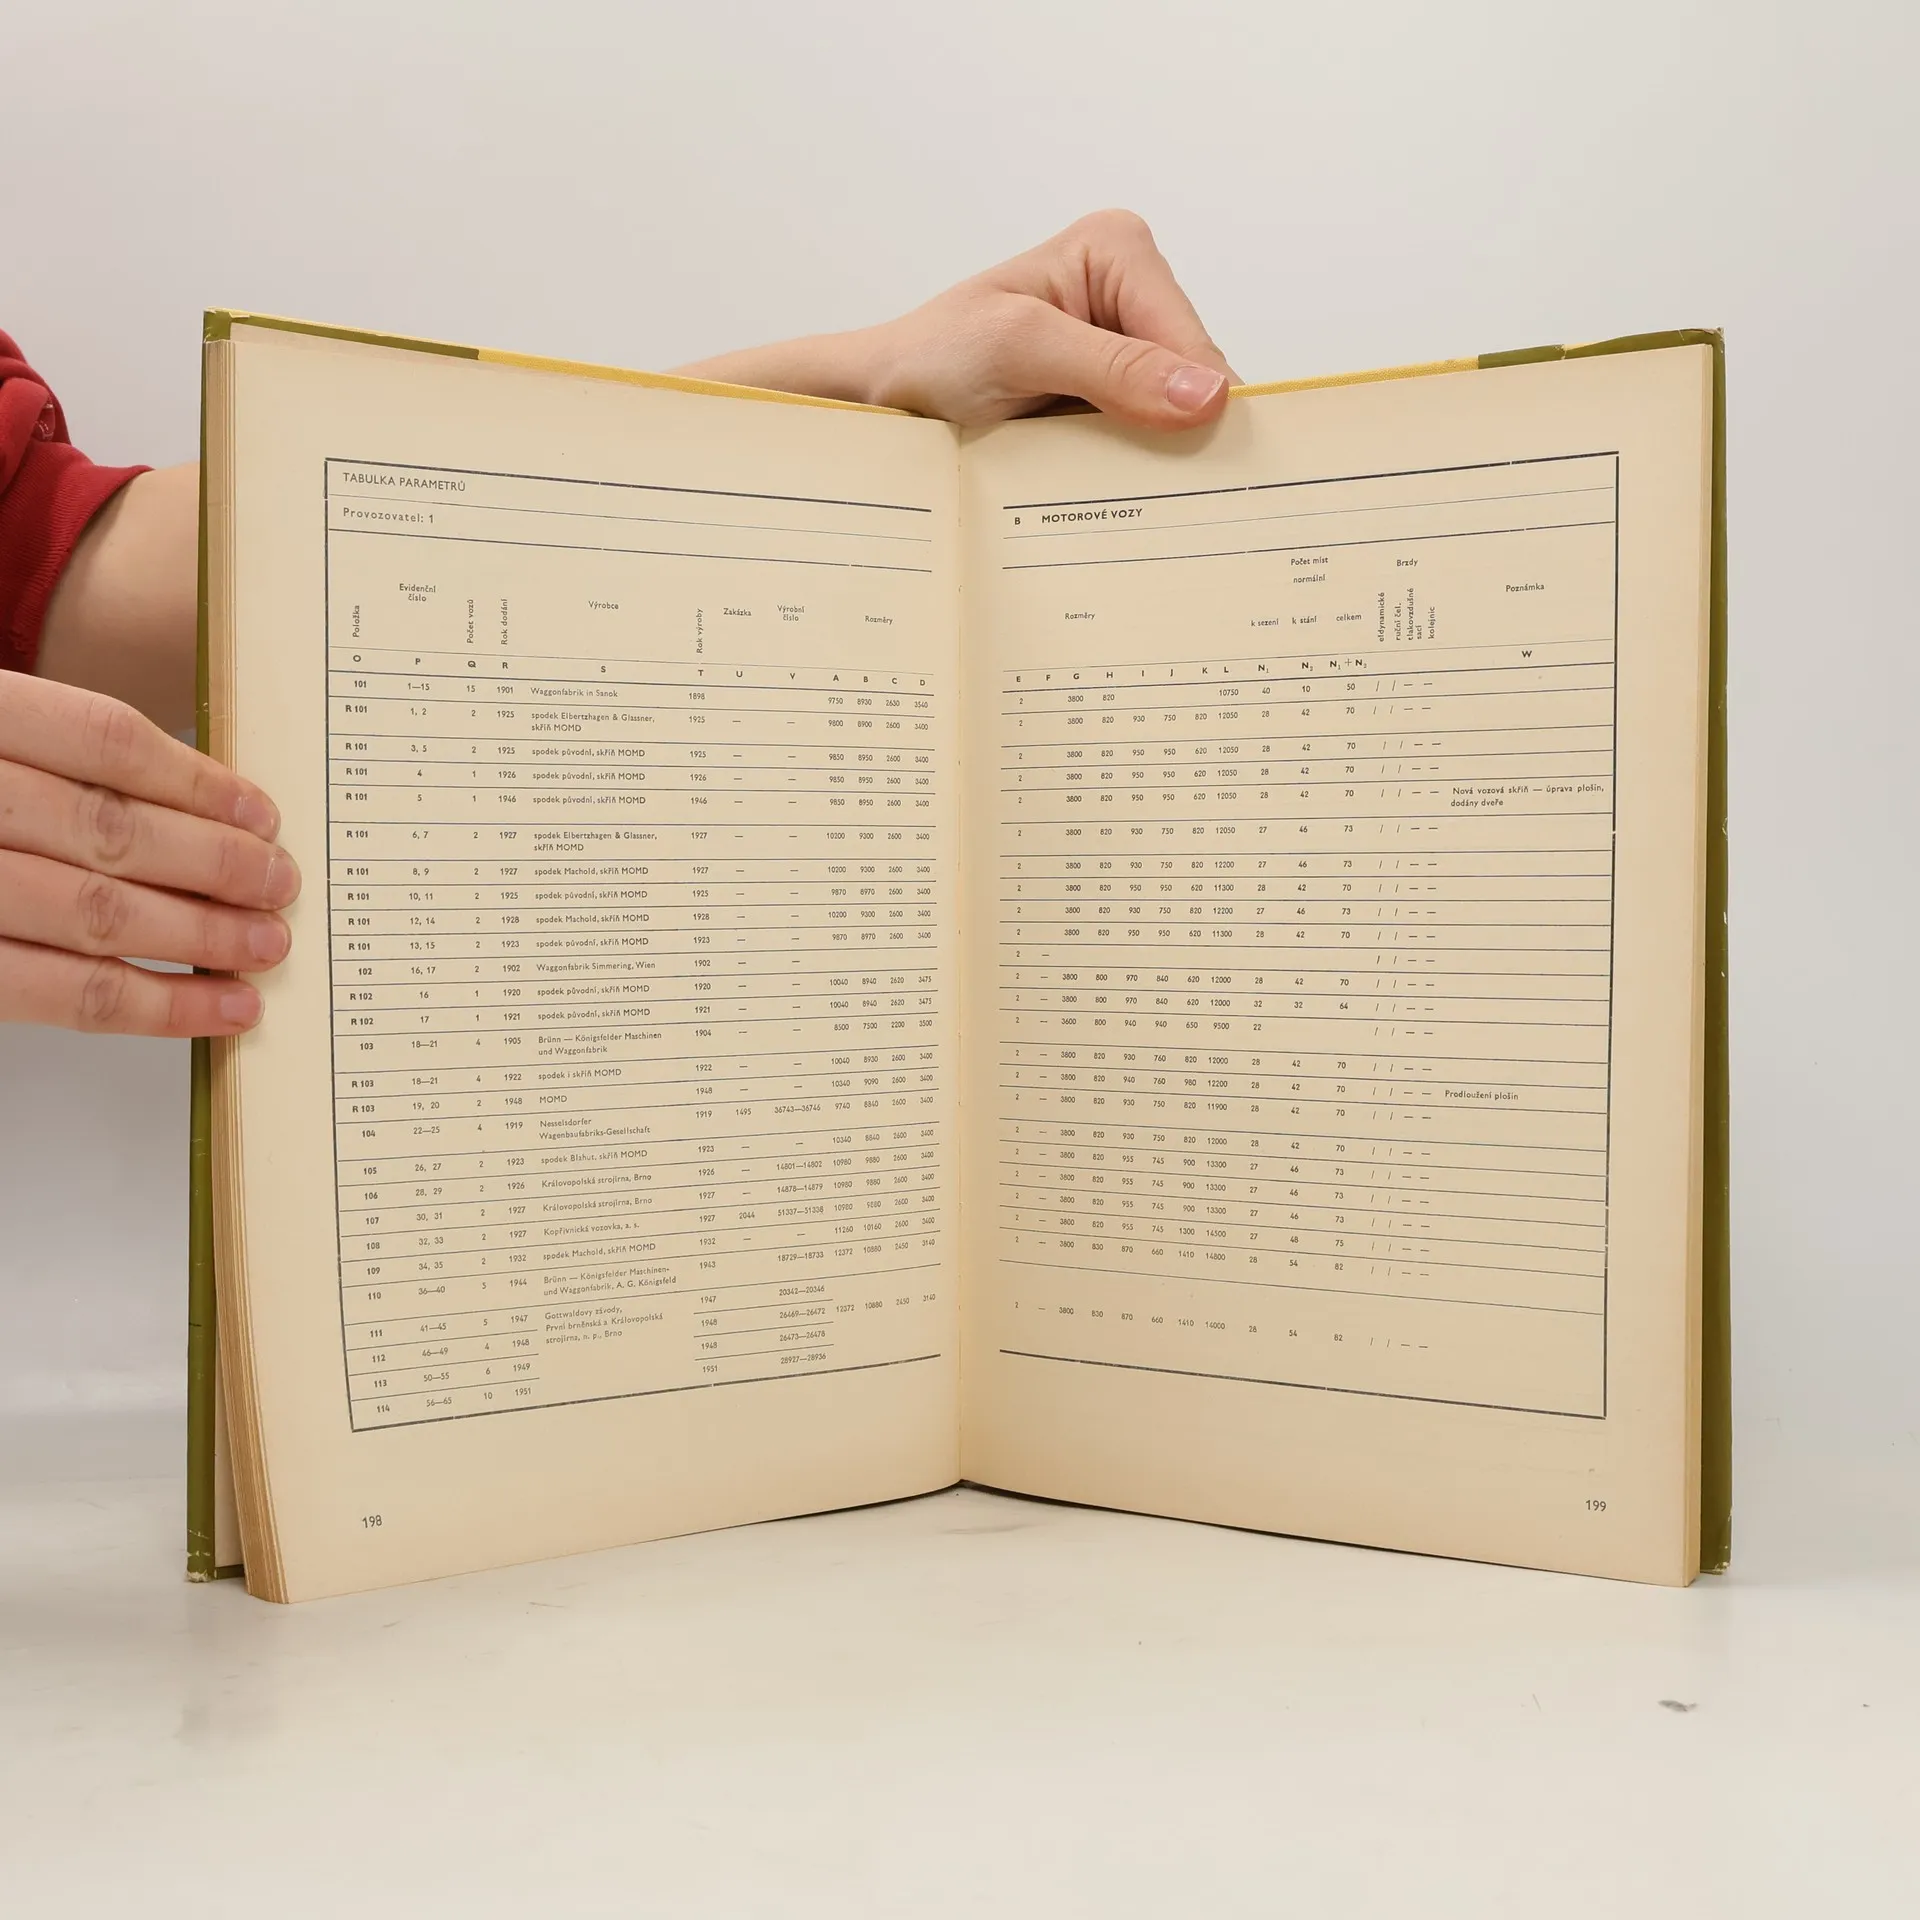 TABULKA PARAMETRŮ
Provozovatel: 1
Položka Evidenční číslo Počet vozů Rok dodání Výrobce Rok výroby Zakázka Výrobní číslo Rozměry
O P Q R S T U V A B C D
101 1—15 15 1901 Waggonfabrik in Sanok 1898 9750 8930 2630 3540
R 101 1, 2 2 1925 spodek Elbertzhagen & Glassner, 1925 — — 9800 8900 2600 3400
skříň MOMD
R 101 3, 5 2 1925 spodek původní, skříň MOMD 1925 — — 9850 8950 2600 3400
R 101 4 1 1926 spodek původní, skříň MOMD 1926 — — 9850 8950 2600 3400
R 101 5 1 1946 spodek původní, skříň MOMD 1946 — — 9850 8950 2600 3400
R 101 6, 7 2 1927 spodek Elbertzhagen & Glassner, 1927 — — 10200 9300 2600 3400
skříň MOMD
R 101 8, 9 2 1927 spodek Machold, skříň MOMD 1927 — — 10200 9300 2600 3400
R 101 10, 11 2 1925 spodek původní, skříň MOMD 1925 — — 9870 8970 2600 3400
R 101 12, 14 2 1928 spodek Machold, skříň MOMD 1928 — — 10200 9300 2600 3400
R 101 13, 15 2 1923 spodek původní, skříň MOMD 1923 — — 9870 8970 2600 3400
102 16, 17 2 1902 Waggonfabrik Simmering, Wien 1902 — —
R 102 16 1 1920 spodek původní, skříň MOMD 1920 — — 10040 8940 2620 3475
R 102 17 1 1921 spodek původní, skříň MOMD 1921 — — 10040 8940 2620 3475
103 18—21 4 1905 Brünn — Königsfelder Maschinen 1904 — — 8500 7500 2200 3500
und Waggonfabrik
R 103 18—21 4 1922 spodek i skříň MOMD 1922 — — 10040 8930 2600 3400
R 103 19, 20 2 1948 MOMD 1948 — — 10340 9090 2600 3400
104 22—25 4 1919 Nesselsdorfer 1919 1495 36743—36746 9740 8840 2600 3400
Wagenbaufabriks-Gesellschaft
105 26, 27 2 1923 spodek Blahut, skříň MOMD 1923 — — 10340 8840 2600 3400
106 28, 29 2 1926 Královopolská strojírna, Brno 1926 — 14801—14802 10980 9880 2600 3400
107 30, 31 2 1927 Královopolská strojírna, Brno 1927 — 14878—14879 10980 9880 2600 3400
108 32, 33 2 1927 Kopřivnická vozovka, a. s. 1927 2044 51337—51338 10980 9880 2600 3400
109 34, 35 2 1932 spodek Machold, skříň MOMD 1932 — — 11260 10160 2600 3400
110 36—40 5 1944 Brünn — Königsfelder Maschinen- 1943 18729—18733 12372 10880 2450 3140
und Waggonfabrik, A. G. Königsfeld
111 41—45 5 1947 Gottwaldovy závody, 1947 20342—20346
112 46—49 4 1948 První brněnská a Královopolská 1948 26469—26472 12372 10880 2450 3140
113 50—55 6 1949 strojírna, n. p., Brno 1948 26473—26478
114 56—65 10 1951 1951 28927—28936
198
B MOTOROVÉ VOZY
Rozměry Počet míst normální k sezení k stání celkem Brzdy eldynamické ruční čel. tlakovzdušné sací kolejnic Poznámka
E F G H I J K L N₁ N₂ N₁ + N₂ W
2 3800 820 10750 40 10 50 / / — —
2 3800 820 930 750 820 12050 28 42 70 / / — —
2 3800 820 950 950 620 12050 28 42 70 / / — —
2 3800 820 950 950 620 12050 28 42 70 / / — —
2 3800 820 950 950 620 12050 28 42 70 / / — — Nová vozová skříň — úprava plošin,
dodány dveře
2 3800 820 930 750 820 12050 27 46 73 / / — —
2 3800 820 930 750 820 12200 27 46 73 / / — —
2 3800 820 950 950 620 11300 28 42 70 / / — —
2 3800 820 930 750 820 12200 27 46 73 / / — —
2 3800 820 950 950 620 11300 28 42 70 / / — —
2 — / / — —
2 — 3800 800 970 840 620 12000 28 42 70 / / — —
2 — 3800 800 970 840 620 12000 32 32 64 / / — —
2 — 3600 800 940 940 650 9500 22 / / — —
2 — 3800 820 930 760 820 12000 28 42 70 / / — —
2 — 3800 820 940 760 980 12200 28 42 70 / / — — Prodloužení plošin
2 — 3800 820 930 750 820 11900 28 42 70 / / — —
2 — 3800 820 930 750 820 12000 28 42 70 / / — —
2 — 3800 820 955 745 900 13300 27 46 73 / / — —
2 — 3800 820 955 745 900 13300 27 46 73 / / — —
2 — 3800 820 955 745 900 13300 27 46 73 / / — —
2 — 3800 820 955 745 1300 14500 27 48 75 / / — —
2 — 3800 830 870 660 1410 14800 28 54 82 / / — —
2 — 3800 830 870 660 1410 14000 28 54 82 / / — —
199